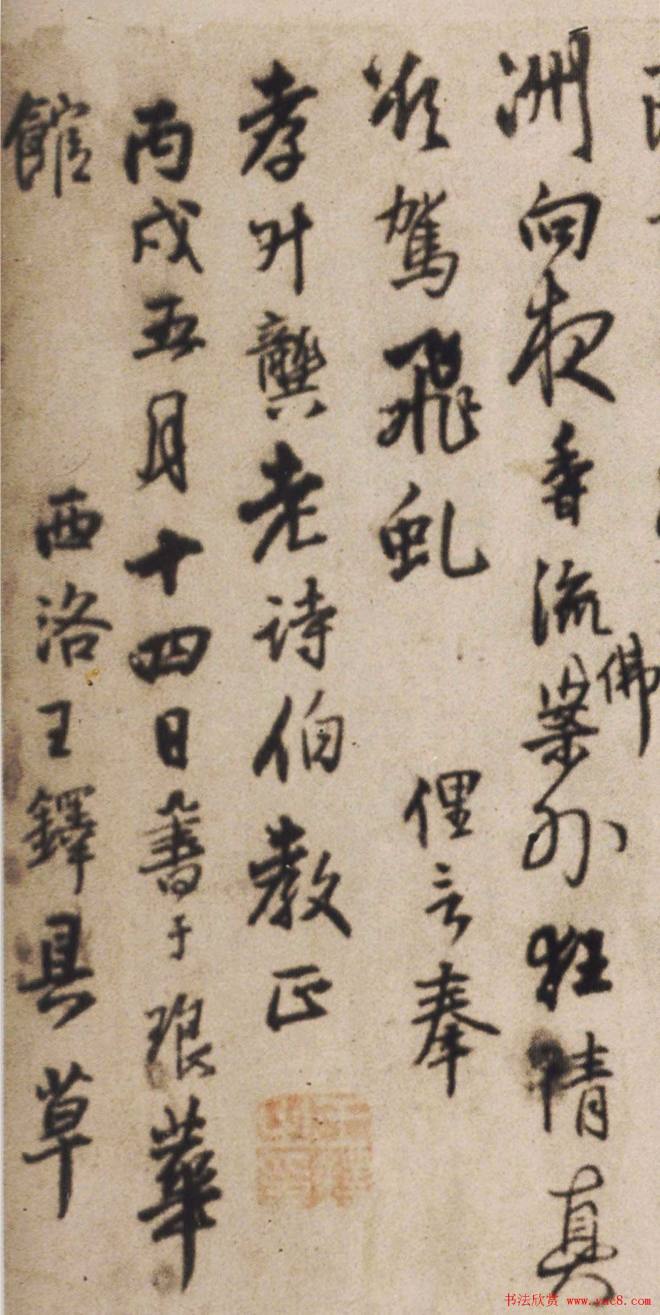 洲向夜香流梁外狂情真
佛
欲驾飛虬
俚言奉
孝叶龔老詩伯教正
丙戌五月十四日書于琅華
館
西洛王鐸具草
书法欣赏 www.yac8.com